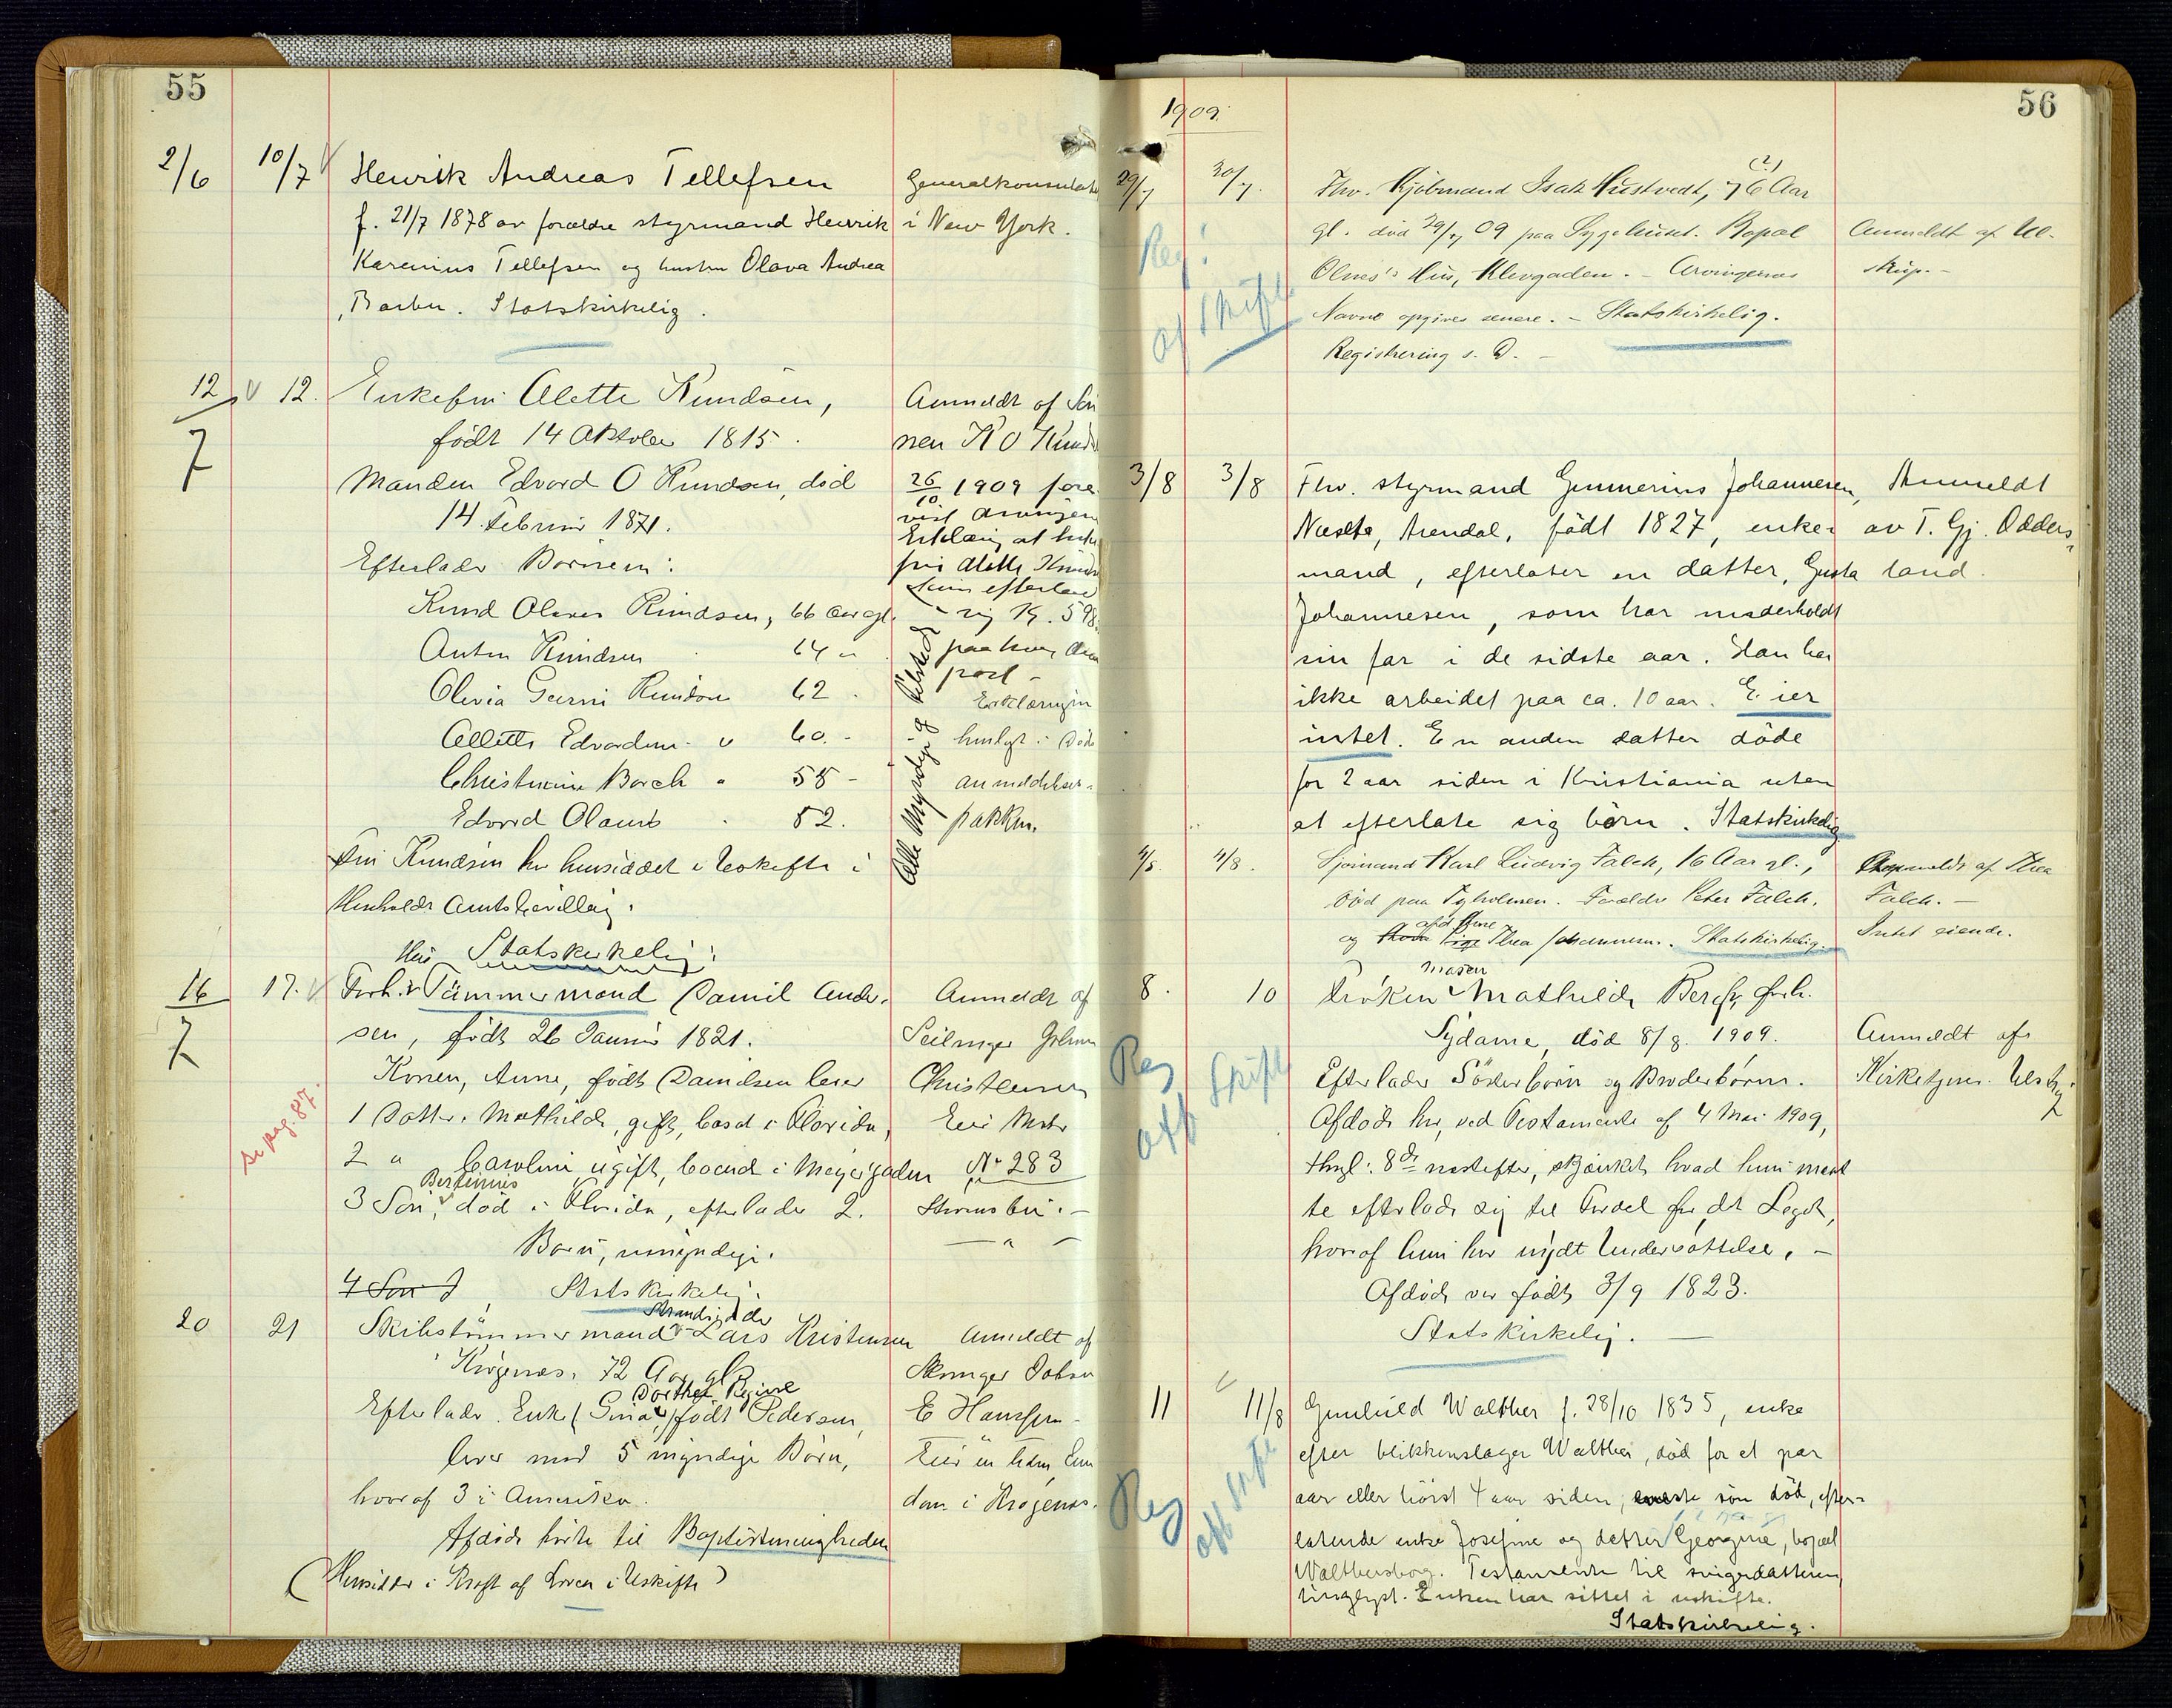 55
2/6 10/7 Henrik Andreas Tellefsen Generalkonsulatet
f. 21/7 1878 av forældre styrmand Henrik i New York.
Karenius Tellefsen og hustru Olava Andrea
Barbu. Statskirkelig.
12/7 12. Enkefru Alette Knudsen, Anmeldt af Søn
født 14 Oktober 1815. nen K O Knuds
Manden Edvard O Knudsen, död 26/10 1909 fore
14 Februar 1871. vist
Efterlader Börnene:
Knud Olaves Knudsen, 66 Aar gl. sig K. 598.
Anton Knudsen 64 " paa hver
Olivia Knudsen 62 Erklæringen
Alette Edvardsen 60. - henlagt i Döds
Christiane Borch " 58 - anmeldelses-
Edvard Olaus 52. pakken.
Alle Myndige og tilstede
Fru Knudsen har hensiddet i Uskifte i
Henhold Amtsbevilling.
Statskirkelig.
16/7 17. Forh. v. Tömmermand Daniel Ander- Anmeldt af
sen, født 26 Januar 1821. Svigersøn Johan
Konen, Anne, født Danielsen lever Christensen
1 Datter, Mathilde, gift, bosat i Florida, Eier Matr
2 " Caroline, ugift, boende i Meyergaden No 283
Bertinius
3 Sön, död i Florida, efterlader 2. Strömsbu. -
Börn, umyndige.
4 Sön Statskirkelig.
se pag. 87.
Strandgaden
20 21 Skibstömmermand Lars Kristensen Anmeldt af
Krögenes, 72 Aar gl. Johan
Dorthea Regine
Efterlader Enke (Gina) født Pedersen, E Hanssen -
lever med 5 myndige Börn, Eier en Eien
hvoraf 3 i Amerika. dom i Krögenes.
Afdöde hørte til Baptistmenigheden
(Hensidder i Kraft af Loven i Uskifte)
1909. 56
29/7 30/7. Fhv. Kjøbmand Isak Hustvedt, 76 (?) Aar
gl. död 29/7 09 paa Sygehuset. Bopæl Anmeldt af Ul-
Olnes's Hus, Klevgaden. - Arvingernes strup. -
Navne opgives senere. - Statskirkelig.
Registrering s. D. -
Reg.
af Skifte
3/8 3/8 Fhv. styrmand Gunnerius Johannesen, Anmeldt
Næsta, Arendal, født 1827, enke- av T. Gj. Odders-
mand, efterlater en datter, Gusta land.
Johannesen, som har underholdt
sin far i de sidste aar. Han har
ikke arbeidet paa ca. 10 aar. Eier
intet. En anden datter döde
for 2 aar siden i Kristiania uten
at efterlate sig børn. Statskirkelig
4/8 4/8. Sjømand Karl Ludvig Falch, 16 Aar gl., Anmeldt af Thea
död paa Tyholmen. Forældre Peter Falch. Falch. -
og Thea Johannesen. Statskirkelig. Intet eiende.
Maren
8. 10 Fröken Mathilde Bergh, forh.
Sydame, död 8/8. 1909. Anmeldt af
Efterlader Söderbörn og Broderbörn. Kirketjener
Afdöde har, ved Testamente af 4 Mai 1909,
thngl. 8de næstefter, skjænket hvad hun maat
te efterlade sig til Fordel for det Legat,
hvoraf hun har nydt Understöttelse. -
Afdöde var født 3/9 1823.
Statskirkelig. -
Reg
aff Skifte
11 11/8 Gunhild Walther f. 28/10 1835, enke
efter blikkenslager Walther, död for et par
aar eller höist 4 aar siden, eneste sön död, efter-
latende enke Josefine og datter Georgine, bopæl
Walthersborg. Testamente til svigerdatteren
tinglyst. Enken har sittet i uskifte.
Statskirkelig.
Reg
aff Skifte